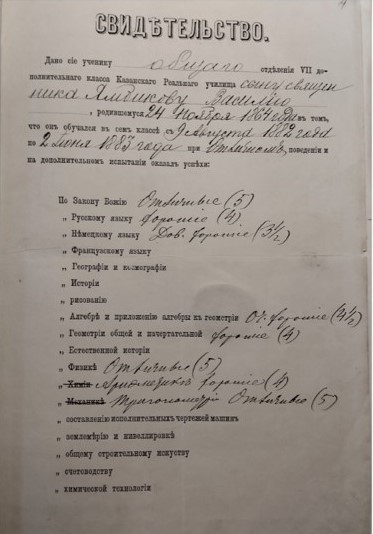 СВИДѢТЕЛЬСТВО.
Дано сіе ученику общаго отдѣленія VII до-
полнительнаго класса Казанскаго Реальнаго училища сыну священ
ника Василію
, родившемуся 24 Ноября 1864 года въ томъ,
что онъ обучался въ семъ классѣ съ 9 Августа 1882 года
по 2 Июня 1883 года при Отличномъ поведеніи и
на дополнительномъ испытаніи оказалъ успѣхи:
По Закону Божію Отличные (5)
„ Русскому языку хорошіе (4)
„ Нѣмецкому языку Дов. хорошіе (3 1/2)
„ Французскому языку
„ Географіи и космографіи
„ Исторіи
„ рисованію
„ Алгебрѣ и приложенію алгебры къ геометріи Оч. хорошіе (4 1/2)
„ Геометріи общей и начертательной хорошіе (4)
„ Естественной исторіи
„ Физикѣ Отличные (5)
„ Химіи Ариѳметикѣ хорошіе (4)
„ Механикѣ Тригонометріи Отличные (5)
„ составленію исполнительныхъ чертежей машинъ
„ землемѣрію и нивеллировкѣ
„ общему строительному искуству
„ счетоводству
„ химической технологіи